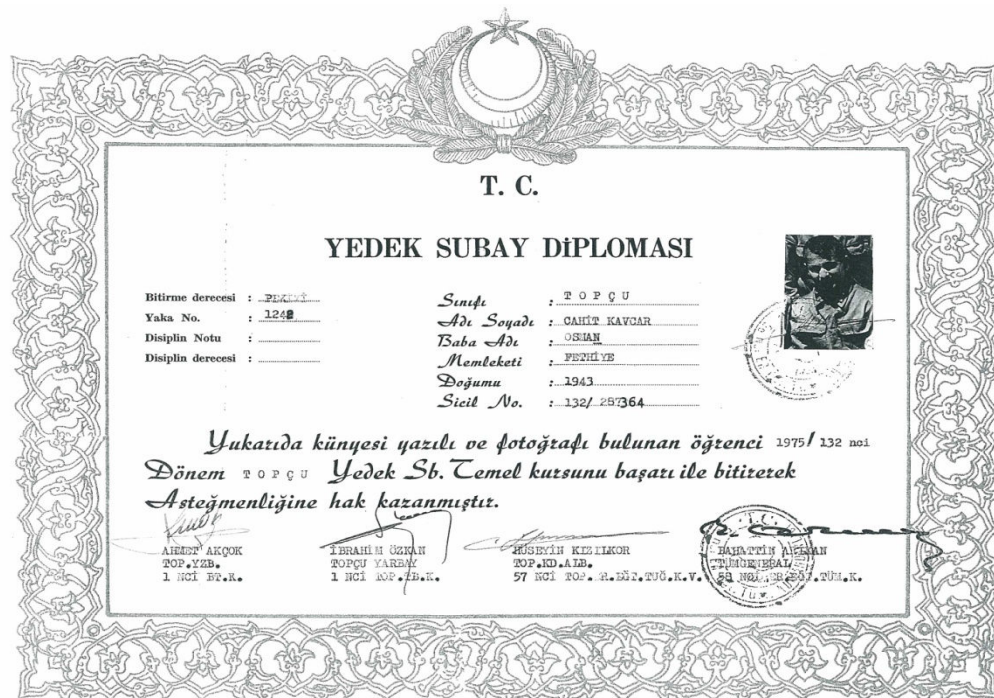 T. C.
YEDEK SUBAY DİPLOMASI
Bitirme derecesi : PEKİYİ
Yaka No. : 1248
Disiplin Notu :
Disiplin derecesi :
Sınıfı : TOPÇU
Adı Soyadı : CAHİT KAVCAR
Baba Adı : OSMAN
Memleketi : FETHİYE
Doğumu : 1943
Sicil No. : 132/ 257364
Yukarıda künyesi yazılı ve fotoğrafı bulunan öğrenci 1975/ 132 nci
Dönem TOPÇU Yedek Sb. Temel kursunu başarı ile bitirerek
Asteğmenliğine hak kazanmıştır.
AHMET AKÇOK
TOP.YZB.
1 NCİ BT.K.
İBRAHİM ÖZKAN
TOPÇU YARBAY
1 NCİ TOP.TB.K.
HÜSEYİN KIZILKOR
TOP.KD.ALB.
57 NCİ TOP.ER.EĞT.TUĞ.K.V.
BAHATTİN
TÜMGENERAL
58 NCİ ER EĞT.TÜM.K.